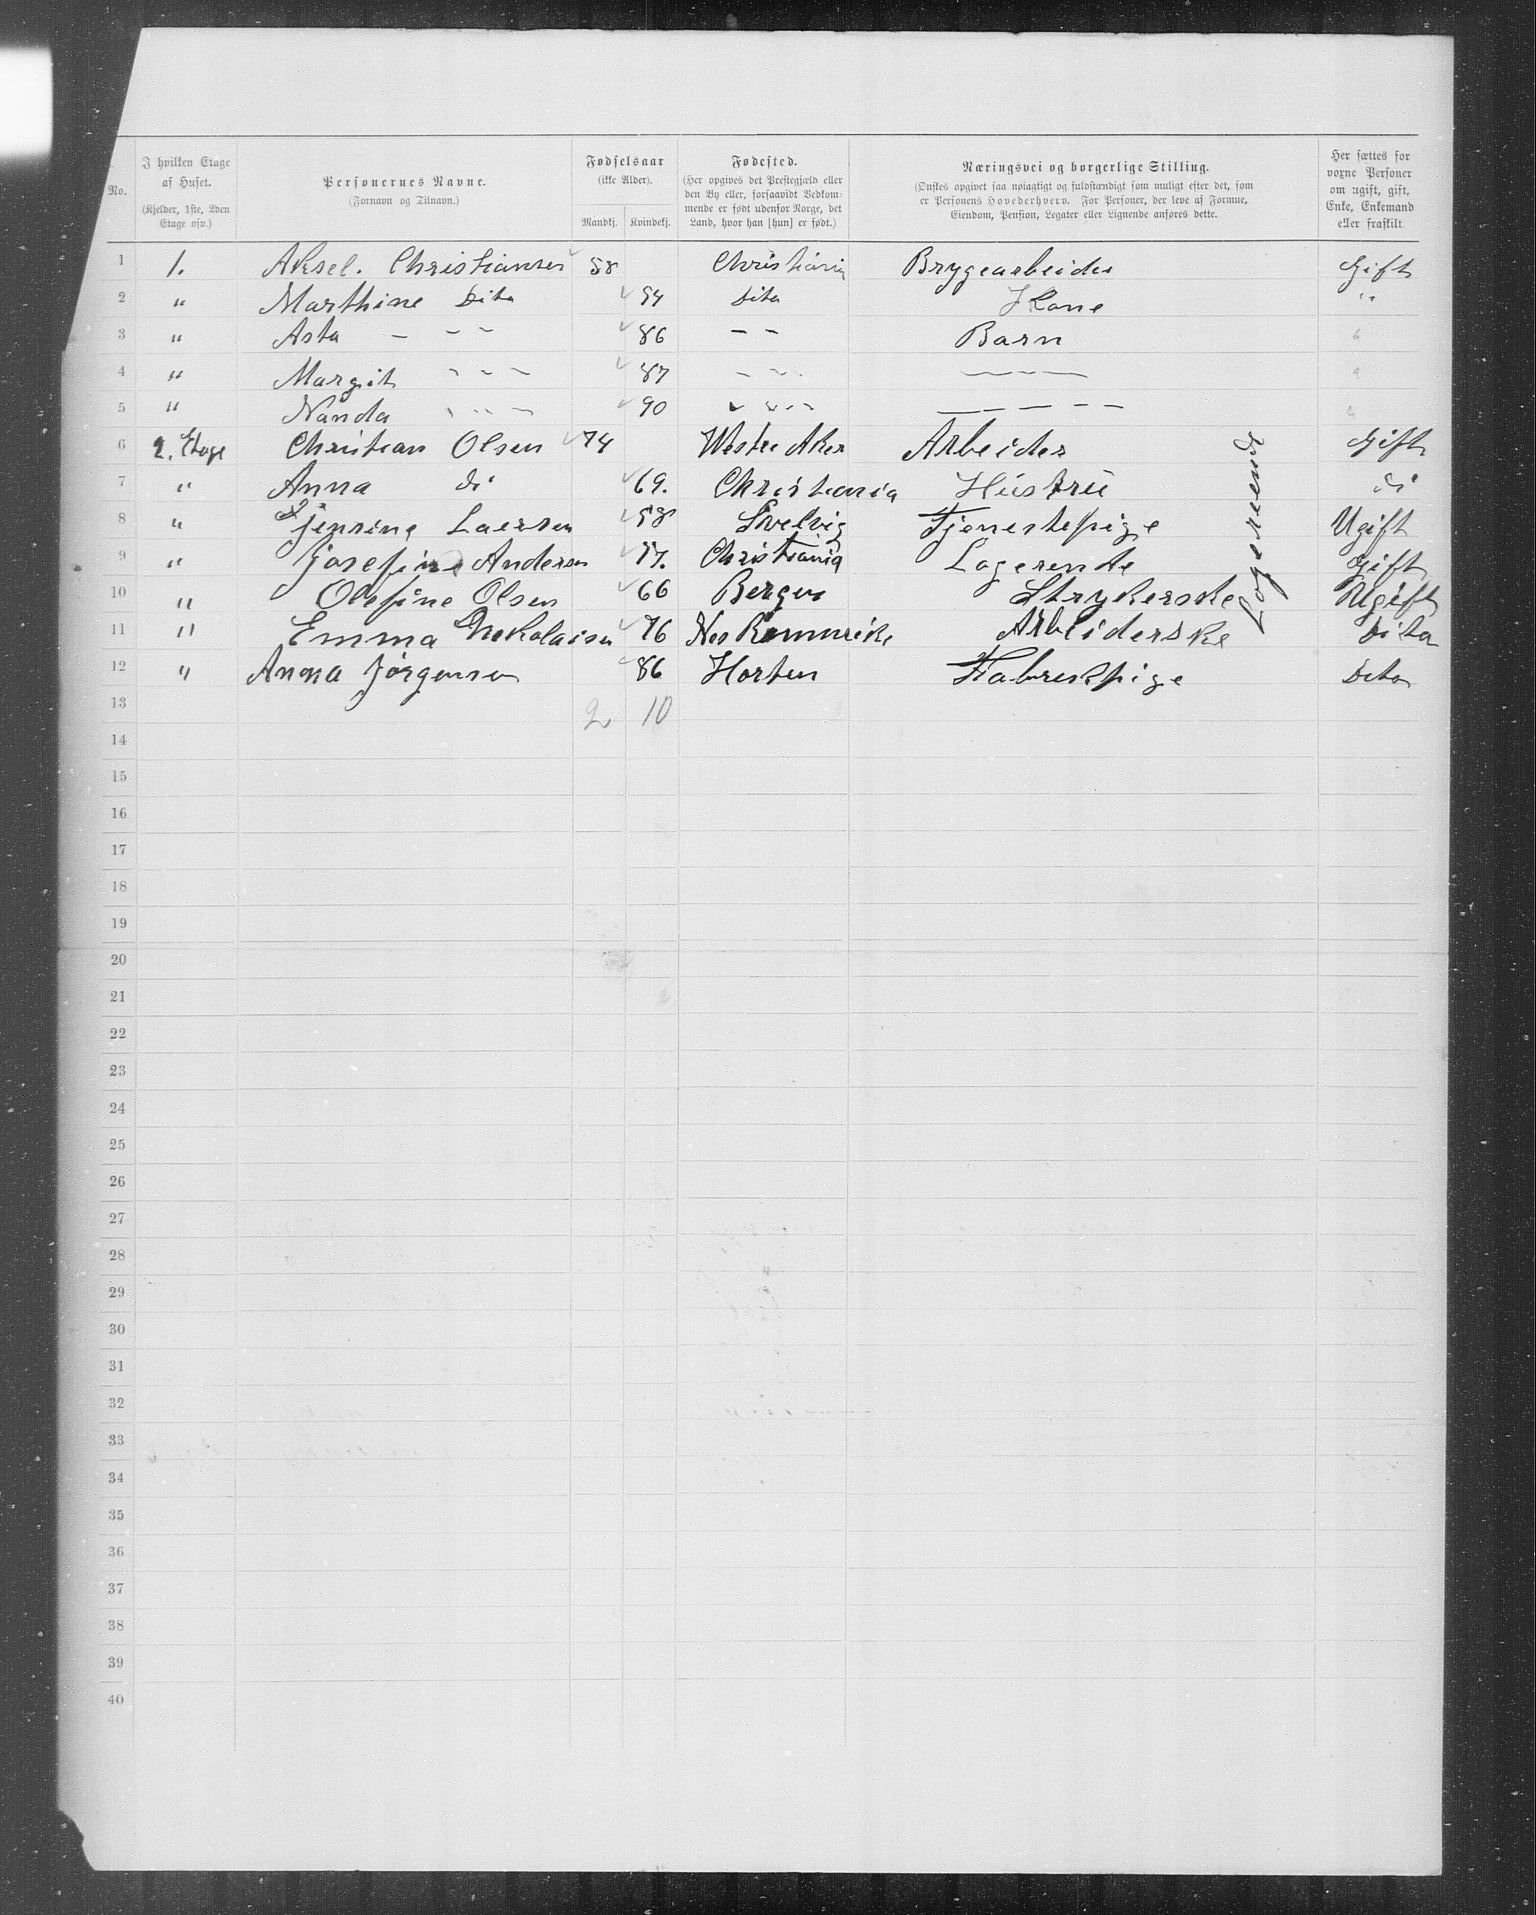 No.
I hvilken Etage af Huset.
(Kjelder, 1ste, 2den Etage osv.)
Personernes Navne.
(Fornavn og Tilnavn.)
Fødselsaar
(ikke Alder).
Mandkj. Kvindekj.
Fødested.
(Her opgives det Prestegjæld eller den By eller, forsaavidt Vedkommende er født udenfor Norge, det Land, hvor han [hun] er født.)
Næringsvei og borgerlige Stilling.
(Ønskes opgivet saa nøiagtigt og fuldstændigt som muligt efter det, som er Personens Hovederhverv. For Personer, der leve af Formue, Eiendom, Pension, Legater eller Lignende anføres dette.
Her sættes for voxne Personer om ugift, gift, Enke, Enkemand eller fraskilt
1 1. Aksel. Christiansen 58 Christiania Brygearbeider Gift
2 " Marthine Dito 54 Dito Kone "
3 " Asta – – – 86 – – Barn "
4 " Margit – – – 87 – – – — — — "
5 " Nanda – – – 90 – – – — — — — — "
6 2. Etage Christian Olsen 74 Westre Aker Arbeider Gift
7 " Anna do 69. Christiania Hüstrü do
8 " Laersen 58 Svelvig Tjenestepige Ugift
9 " Josefine Andersen 77. Christiania Logerende Gift
10 " Olefine Olsen 66 Bergen Strykerske Ugift
11 " Emma Nekolaisen 76 Nes Romerike Arbeiderske Dito
12 " Anna Jørgensen 86 Horten Fabrekpige Dito
Logerende
13 2 10
14
15
16
17
18
19
20
21
22
23
24
25
26
27
28
29
30
31
32
33
34
35
36
37
38
39
40